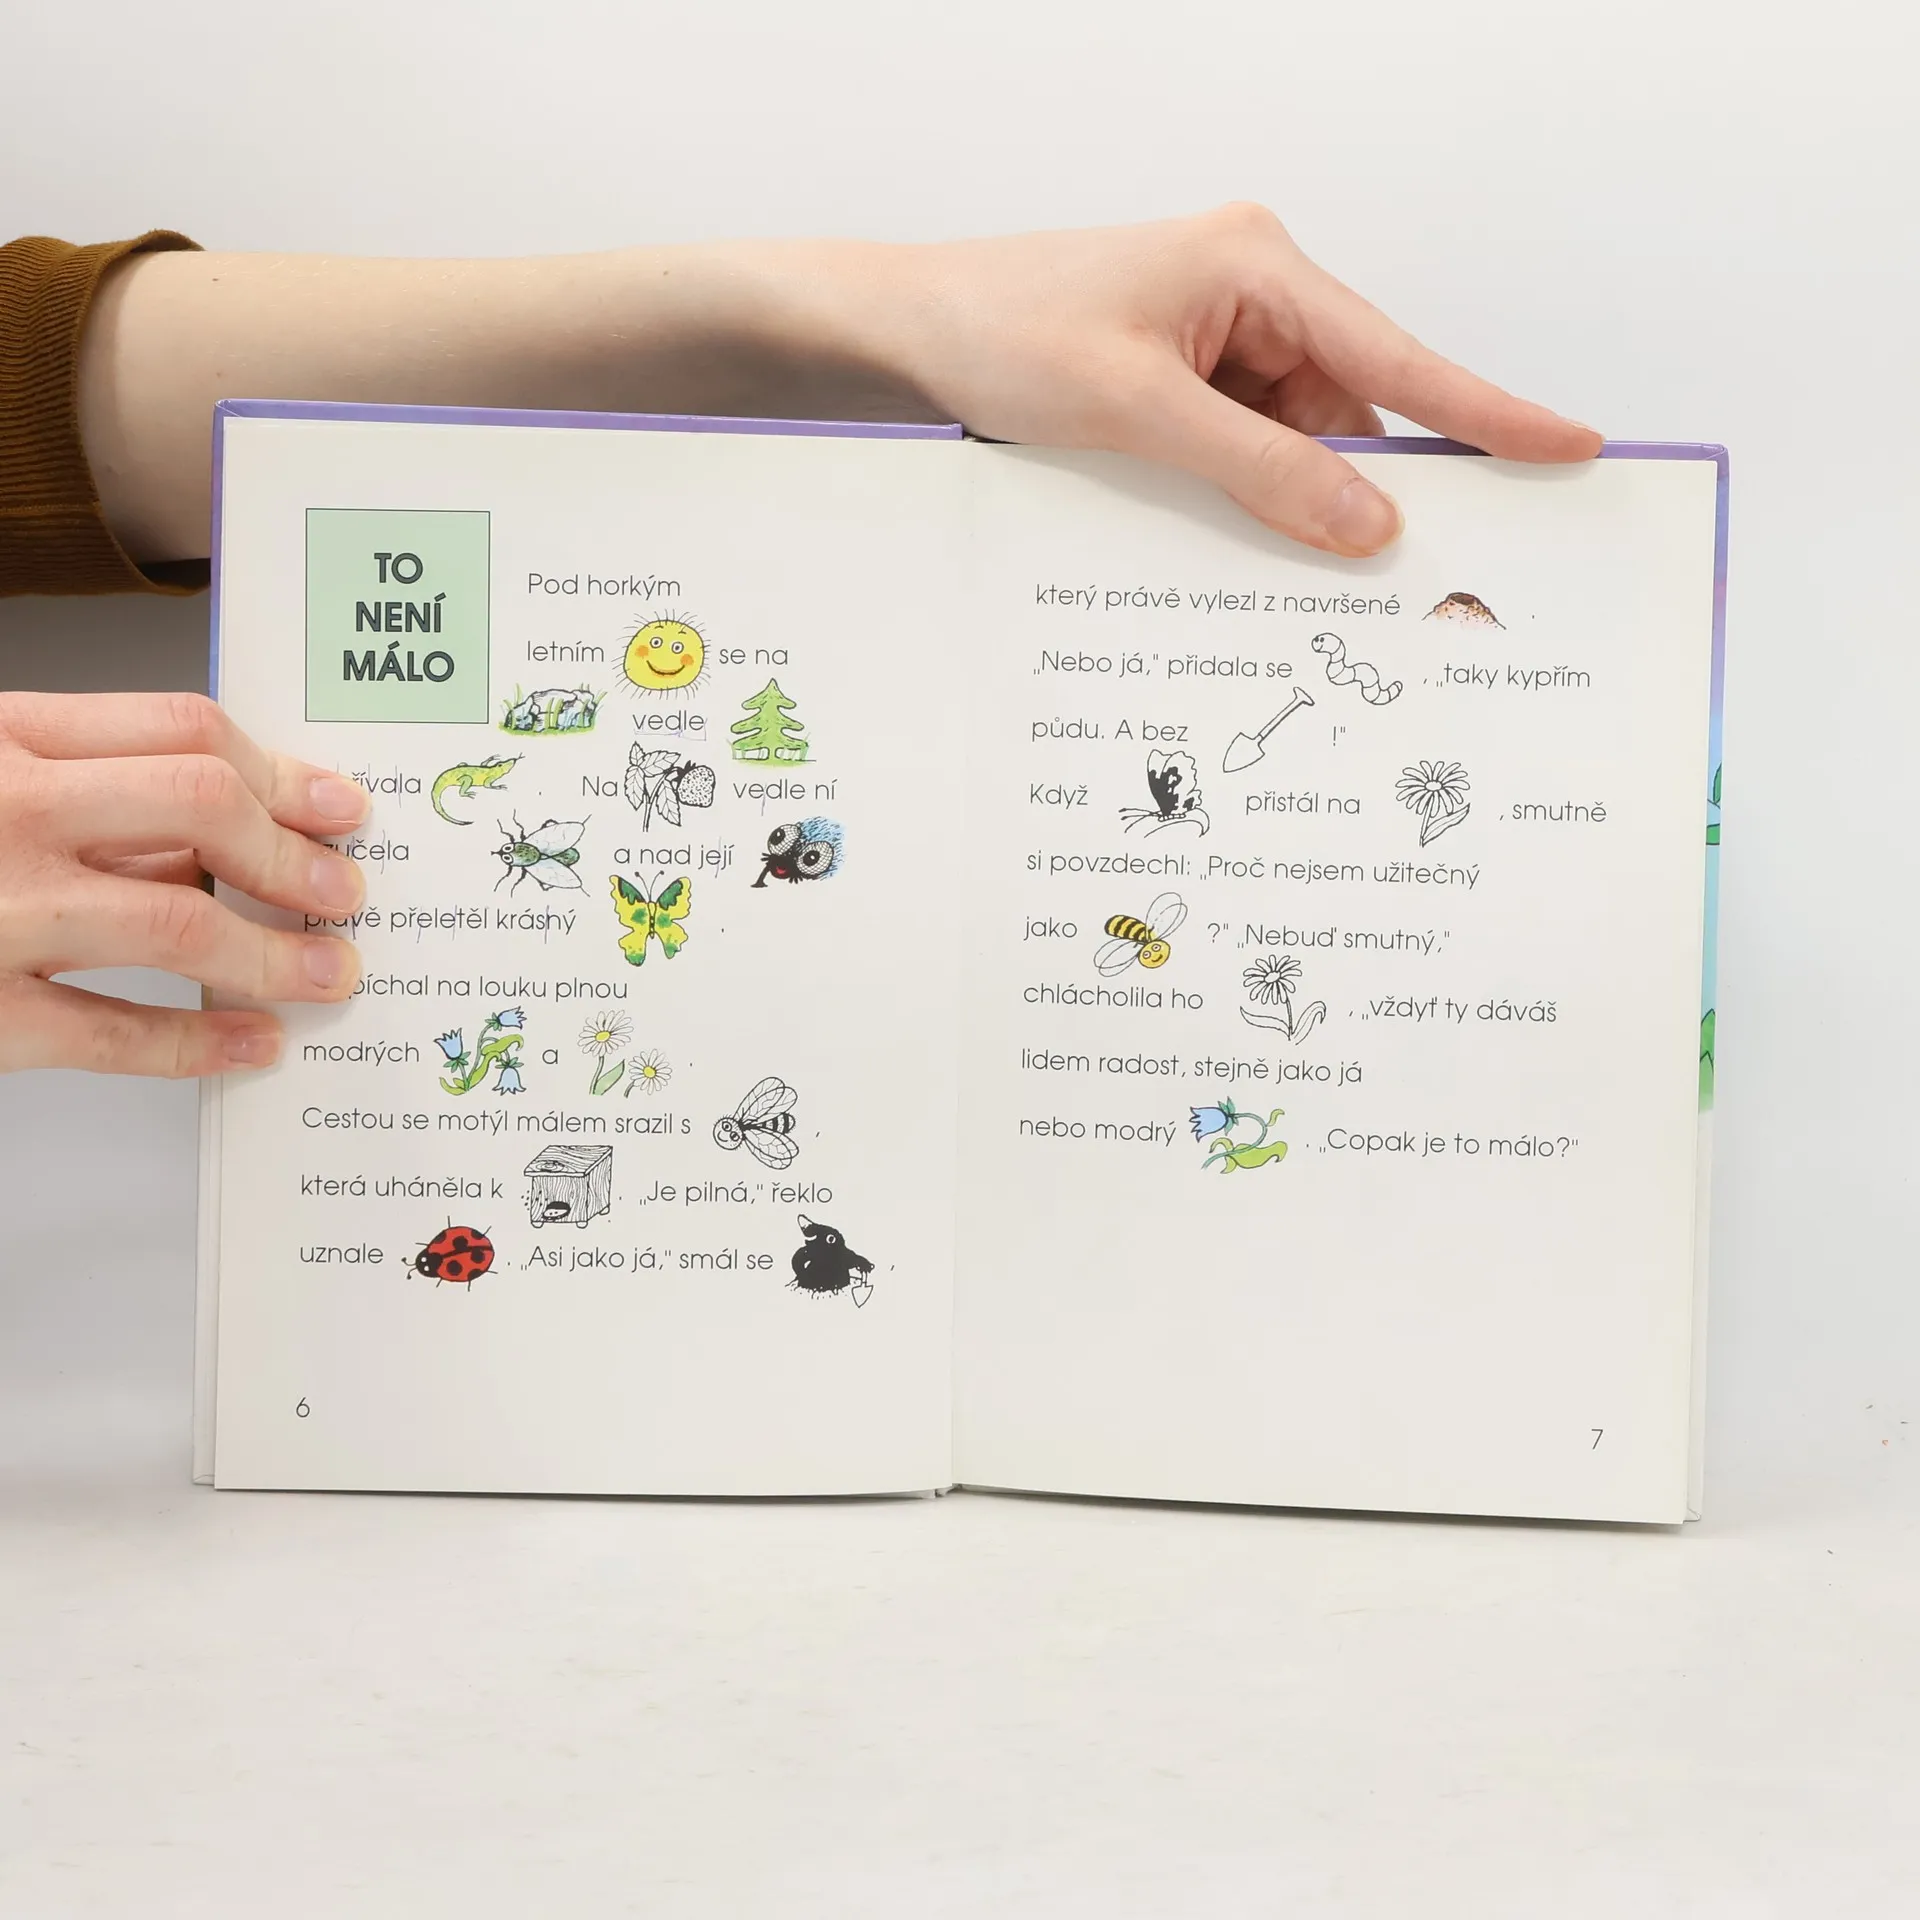 TO
NENÍ
MÁLO
Pod horkým
letním se na
vedle
. Na vedle ní
a nad její
přeletěl krásný .
na louku plnou
modrých a .
Cestou se motýl málem srazil s ,
která uháněla k . „Je pilná," řeklo
uznale . „Asi jako já," smál se ,
6
který právě vylezl z navršené .
„Nebo já," přidala se , „taky kypřím
půdu. A bez !"
Když přistál na , smutně
si povzdechl: „Proč nejsem užitečný
jako ?" „Nebuď smutný,"
chlácholila ho , „vždyť ty dáváš
lidem radost, stejně jako já
nebo modrý . „Copak je to málo?"
7